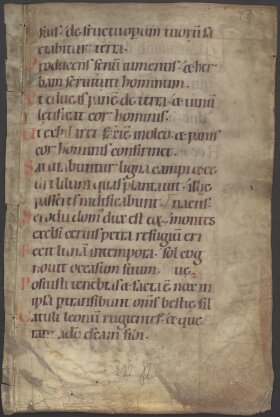 suis de fructu opum tuorū sa
tiabitur terra.
Producens fenū iumentis. & her
bam seruituti hominum.
Vt educas panē de terra. & uinū
letificat cor hominis.
Vt exhilaret faciē in oleo. & panis
cor hominis confirmet.
Saturabuntur ligna campi & ce
libani quas plantauit. illic
passeres nidificabunt.
dux est eoꝝ. montes
excelsi ceruis petra refugiū eri
Fecit lunā in tempora. sol cog
nouit occasum suum.
Posuisti tenebras & facta ē nox in
ipsa ꝑtransibunt om̄s bestie sil
Catuli leonū rugientes. & que
rant a do escam sibi.